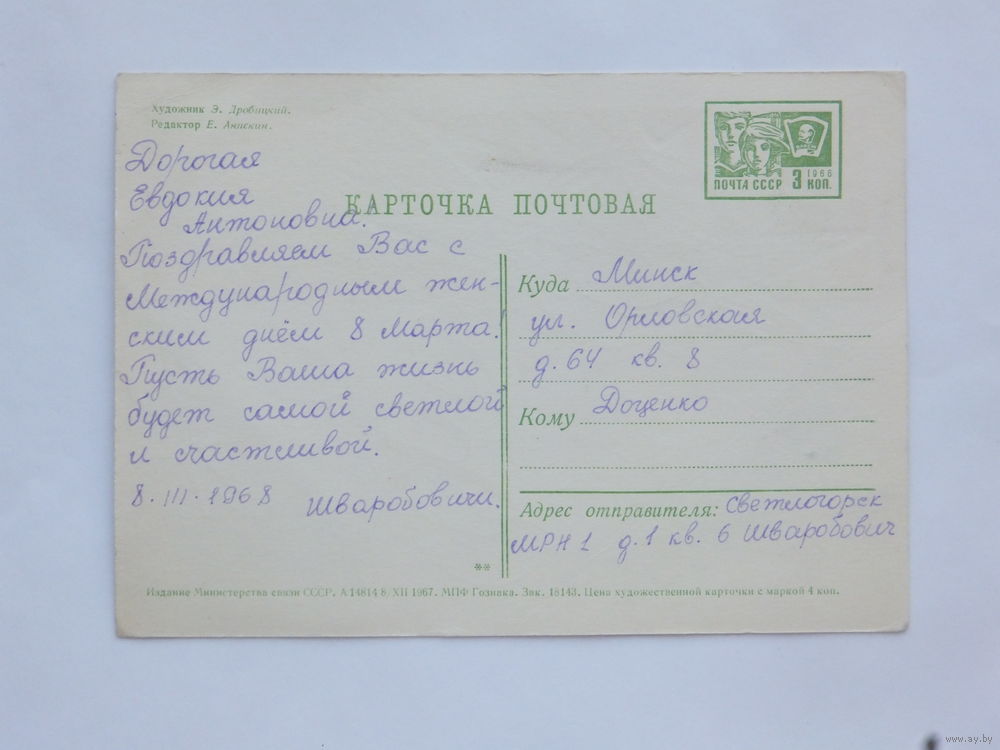 Художник Э. Дробицкий.
Редактор Е. Анискин.
1966
ПОЧТА СССР 3 КОП.
КАРТОЧКА ПОЧТОВАЯ
Дорогая
Евдокия
Антоновна.
Поздравляем Вас с
Международным жен-
ским днём 8 Марта!
Пусть Ваша жизнь
будет самой светлой
и счастливой.
8.III.1968 Шваробовичи.
Куда Минск
ул. Орловская
д. 64 кв. 8
Кому Доценко
Адрес отправителя: Светлогорск
МРН 1 д. 1 кв. 6 Шваробович
**
Издание Министерства связи СССР. А 14814 8/XII 1967. МПФ Гознака. Зак. 18143. Цена художественной карточки с маркой 4 коп.
www.ay.by